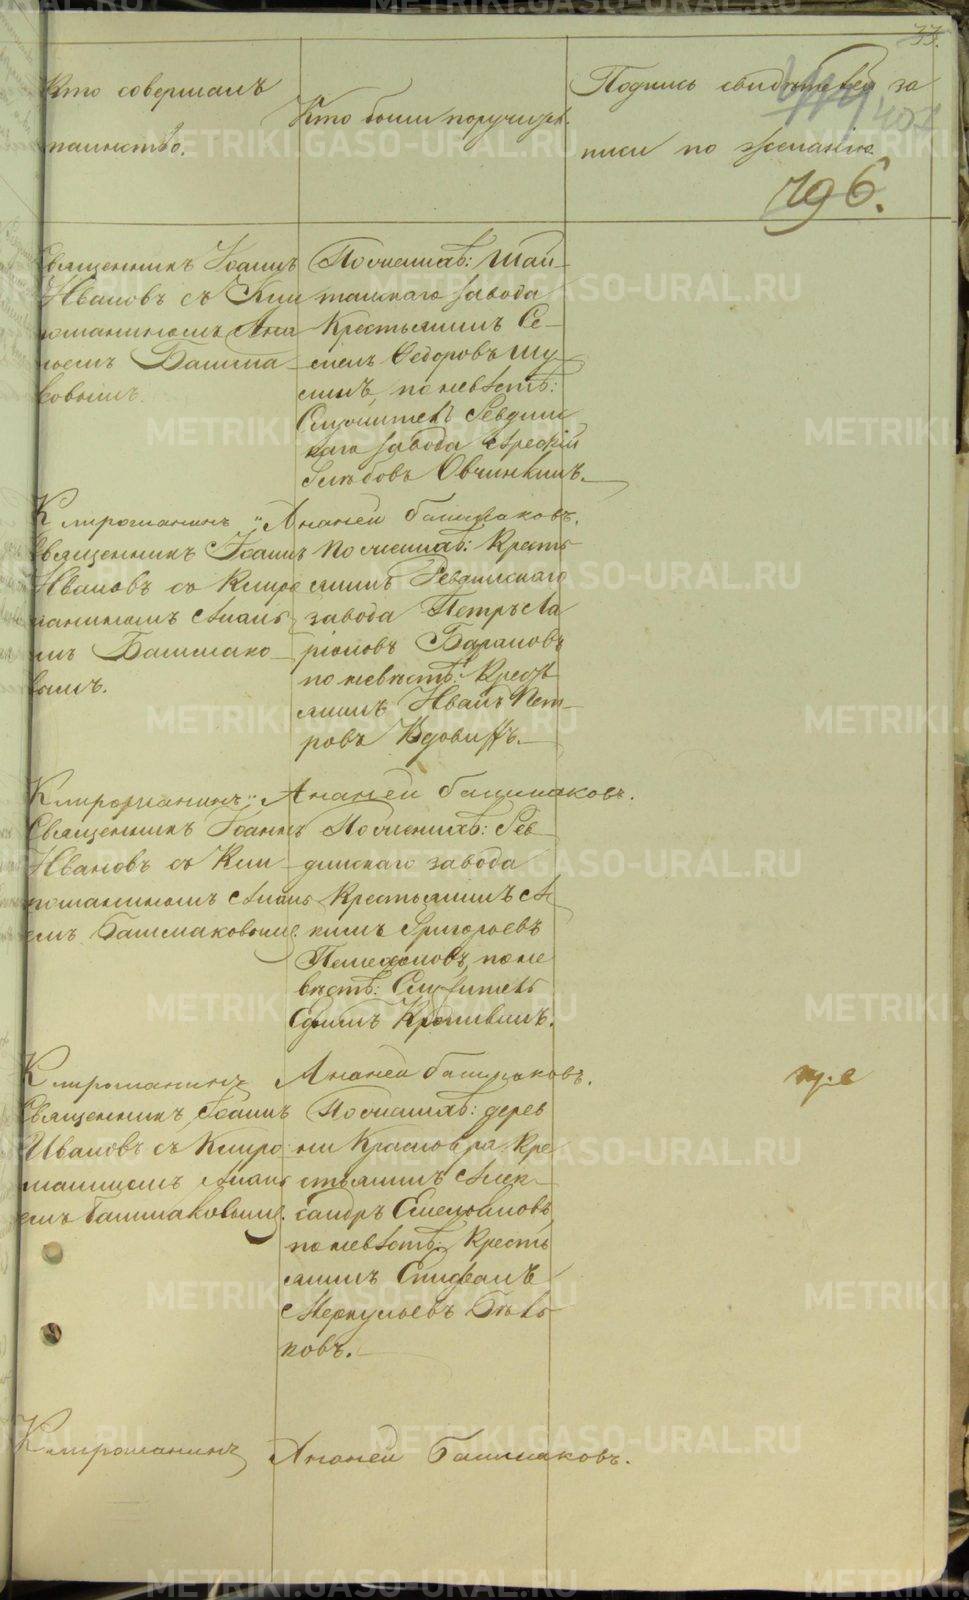 33.
Кто совершалъ
таинство.
Кто были поручит.
Подпись свидѣтелей за
писи по желанію.
407
196.
Священникъ Іоаннъ
Ивановъ съ Кли
рошаниномъ Ана
ніемъ Башма
ковымъ.
По женихѣ: Шай-
танскаго завода
Крестьянинъ Се-
менъ Ѳедоровъ Шу
линъ, по невѣстѣ:
Служитель Ревдин
скаго завода
Глѣбовъ Овчинкинъ.
Клирошанинъ: Ананей Башмаковъ.
Священникъ Іоаннъ
Ивановъ съ Клиро
шаниномъ Анань
мъ Башмако-
вымъ.
По женихѣ: Кресть
янинъ Ревдинскаго
завода Петръ Ла
ріоновъ Барановъ
по невѣстѣ: Кресть
янинъ Иванъ Пет-
ровъ Вдовинъ.
Клирошанинъ: Ананей Башмаковъ.
Священникъ Іоаннъ
Ивановъ съ Кли-
рошаниномъ Анань
емъ Башмаковымъ.
По женихѣ: Рев-
динскаго завода
Крестьянинъ А
кимъ Григорьевъ
по не
вѣстѣ: Служитель
Ефимъ
Клирошанинъ Ананей Башмаковъ.
Священникъ Іоаннъ
Ивановъ съ Клиро
шаниномъ Анань
емъ Башмаковымъ.
По женихѣ: дерев
ни Краснояра Кре
стьянинъ Алек-
сандръ Емельяновъ,
по невѣстѣ: Кресть
янинъ Епифанъ
Меркульевъ Бѣль
ковъ.
Клирошанинъ Ананей Башмаковъ.
METRIKI.GASO-URAL.RU